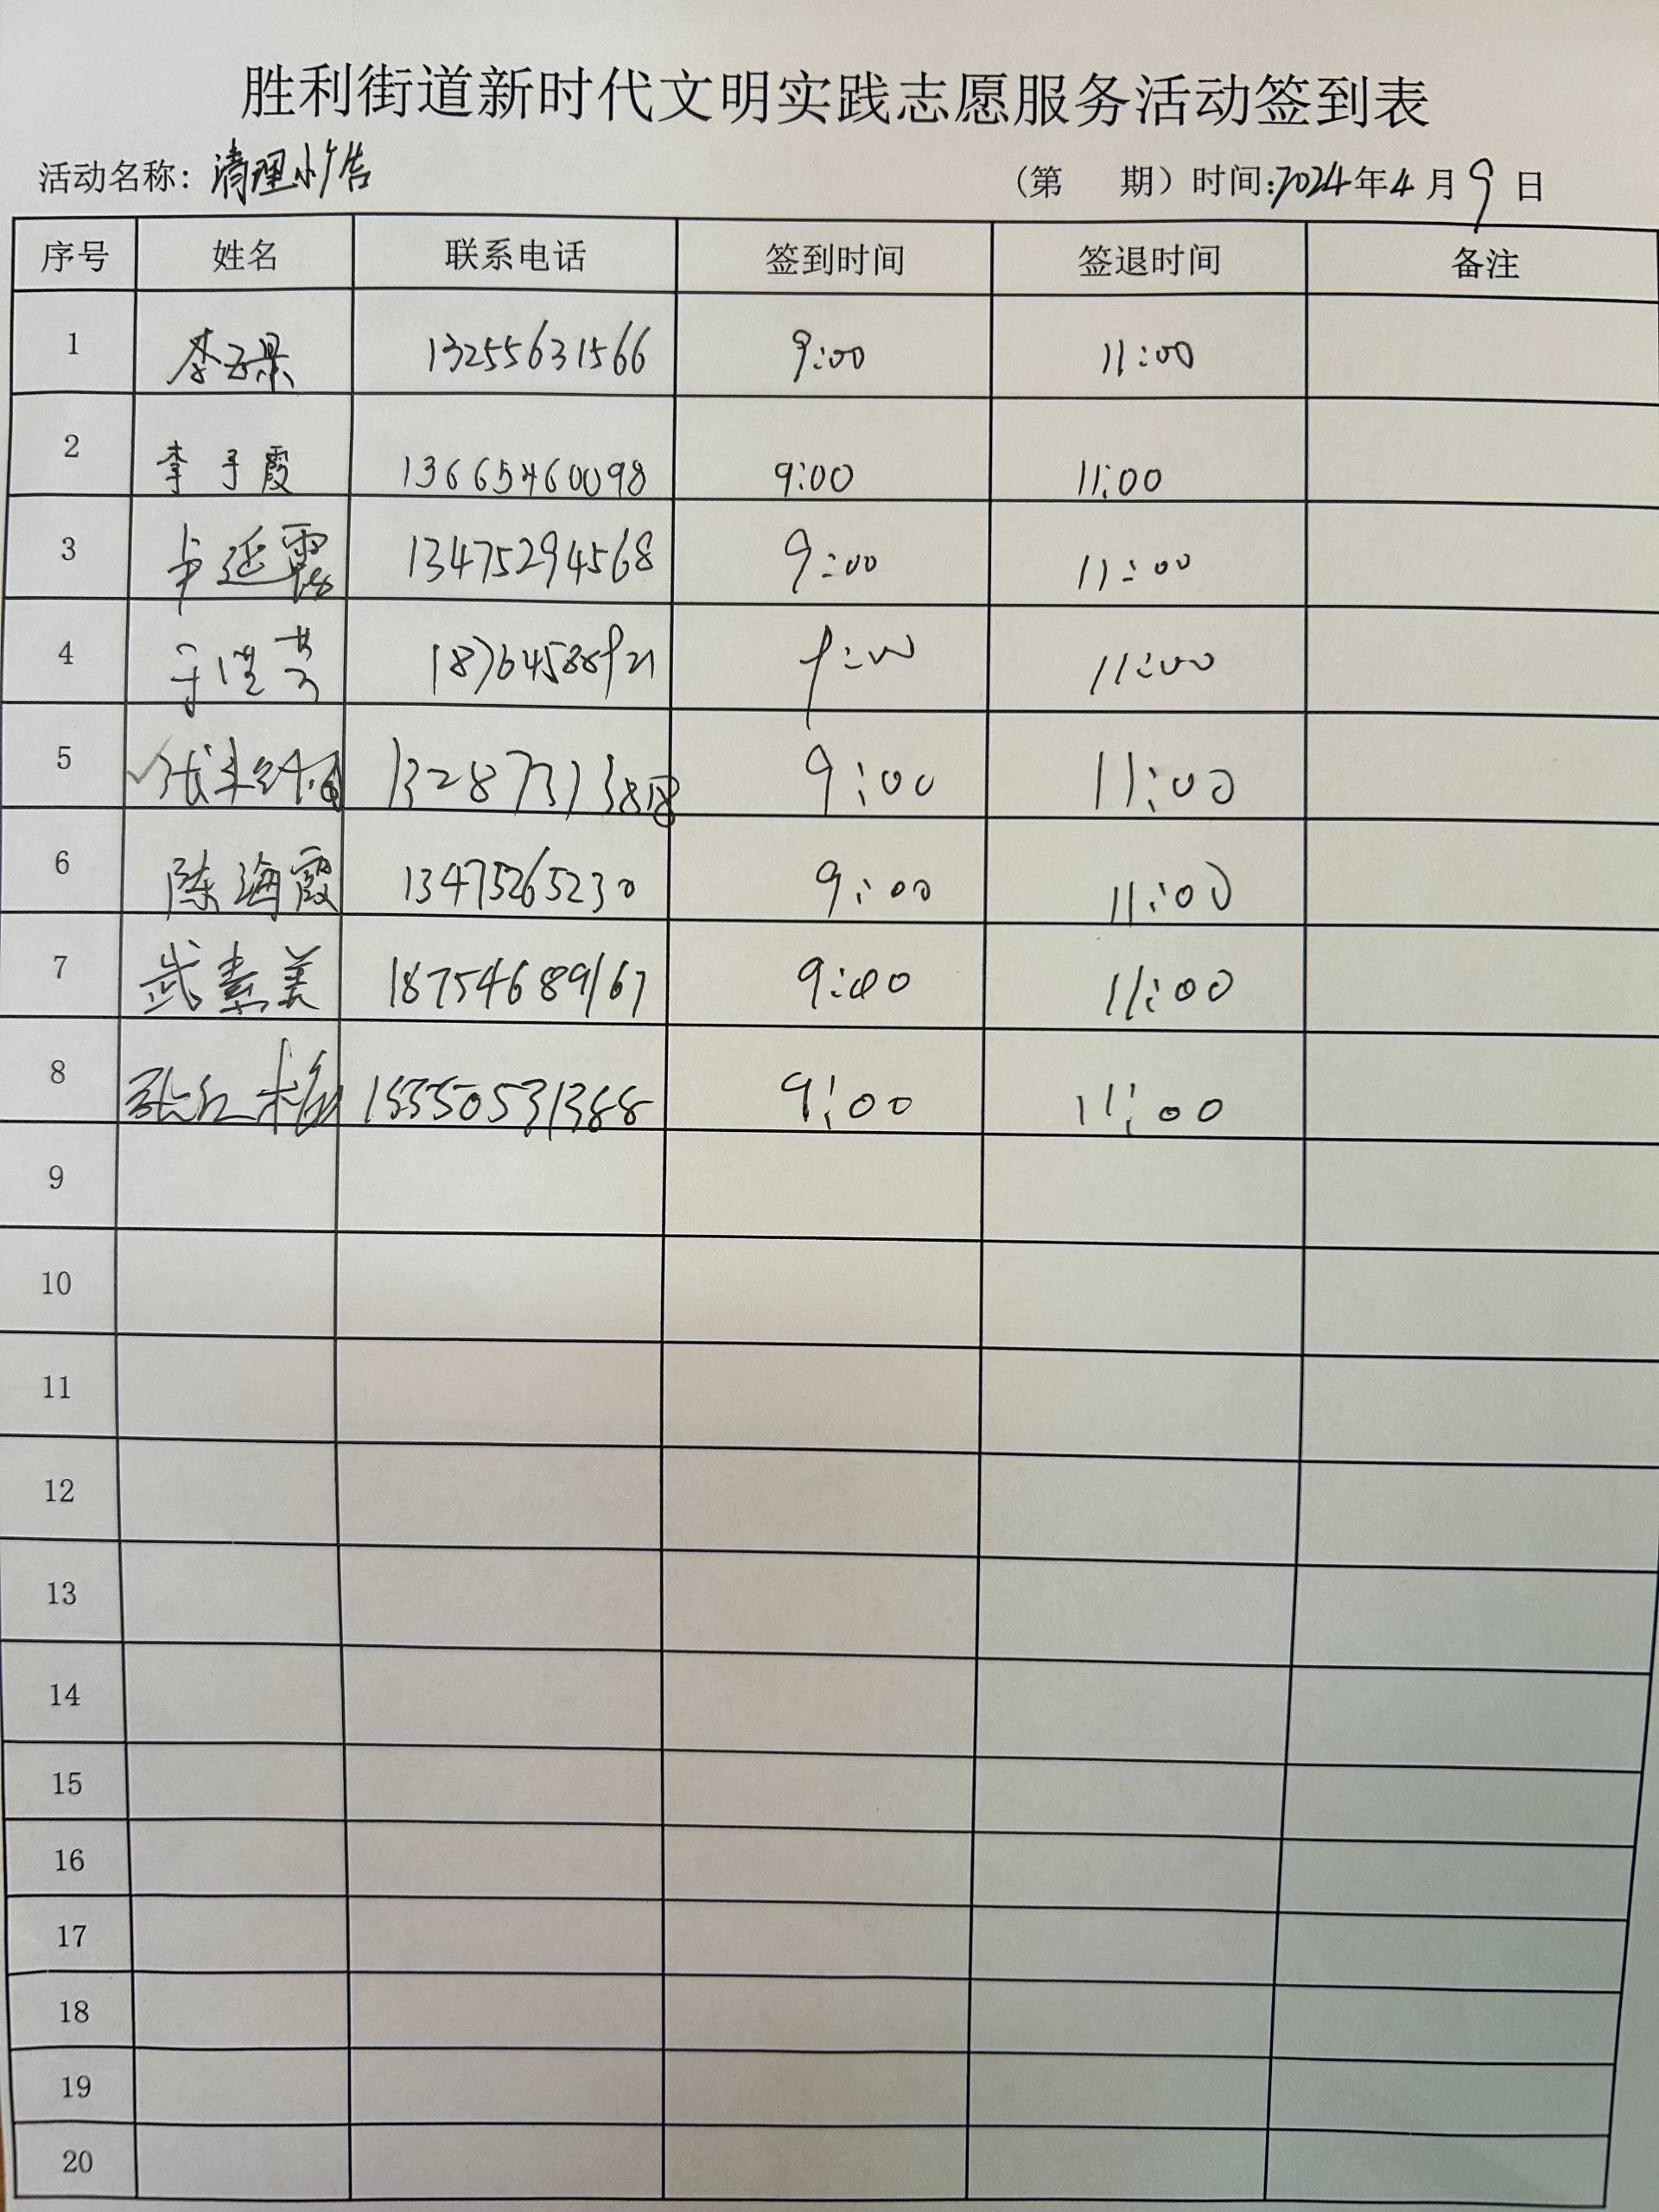 胜利街道新时代文明实践志愿服务活动签到表
活动名称：清理小广告 （第 期）时间:2024年4月9日
序号 姓名 联系电话 签到时间 签退时间 备注
1 李 13255631566 9:00 11:00
2 李子霞 13665460098 9:00 11:00
3 卞延霞 13475294568 9:00 11:00
4 18764588921 9:00 11:00
5 9:00 11:00
6 陈海霞 13475265230 9:00 11:00
7 武素美 18754689167 9:00 11:00
8 9:00 11:00
9
10
11
12
13
14
15
16
17
18
19
20